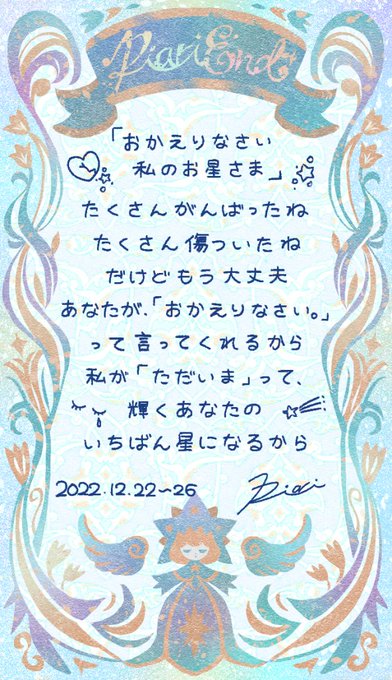 Riari End
「おかえりなさい
私のお星さま」
たくさんがんばったね
たくさん傷ついたね
だけどもう大丈夫
あなたが、「おかえりなさい。」
って言ってくれるから
私が「ただいま」って、
輝くあなたの
いちばん星になるから
2022.12.22~26